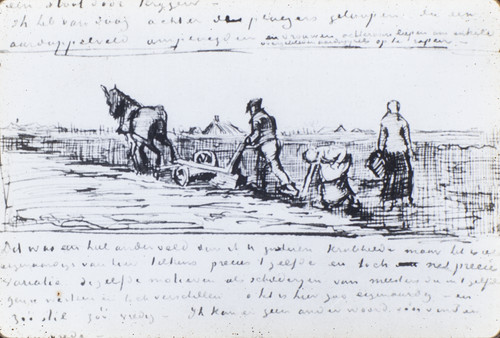 een stool door krijgen —
Ik heb van daag achter de ploegers geloopen die een
aardappelveld omploegden en vrouwen achteraan liepen om enkele
aardappels op te rapen —
Dit was een heel ander veld dan ik u gisteren krabbelde maar het is een
eigenaardige van hier telkens precies 't zelfde en toch net precies
variatie dezelfde motieven als schilderijen van meesters die in 't zelfde
genre werken en toch verschillen o het is hier zoo eigenaardig — en
zoo stil zoo vredig — Ik kan er geen ander woord voor vinden
vrede —